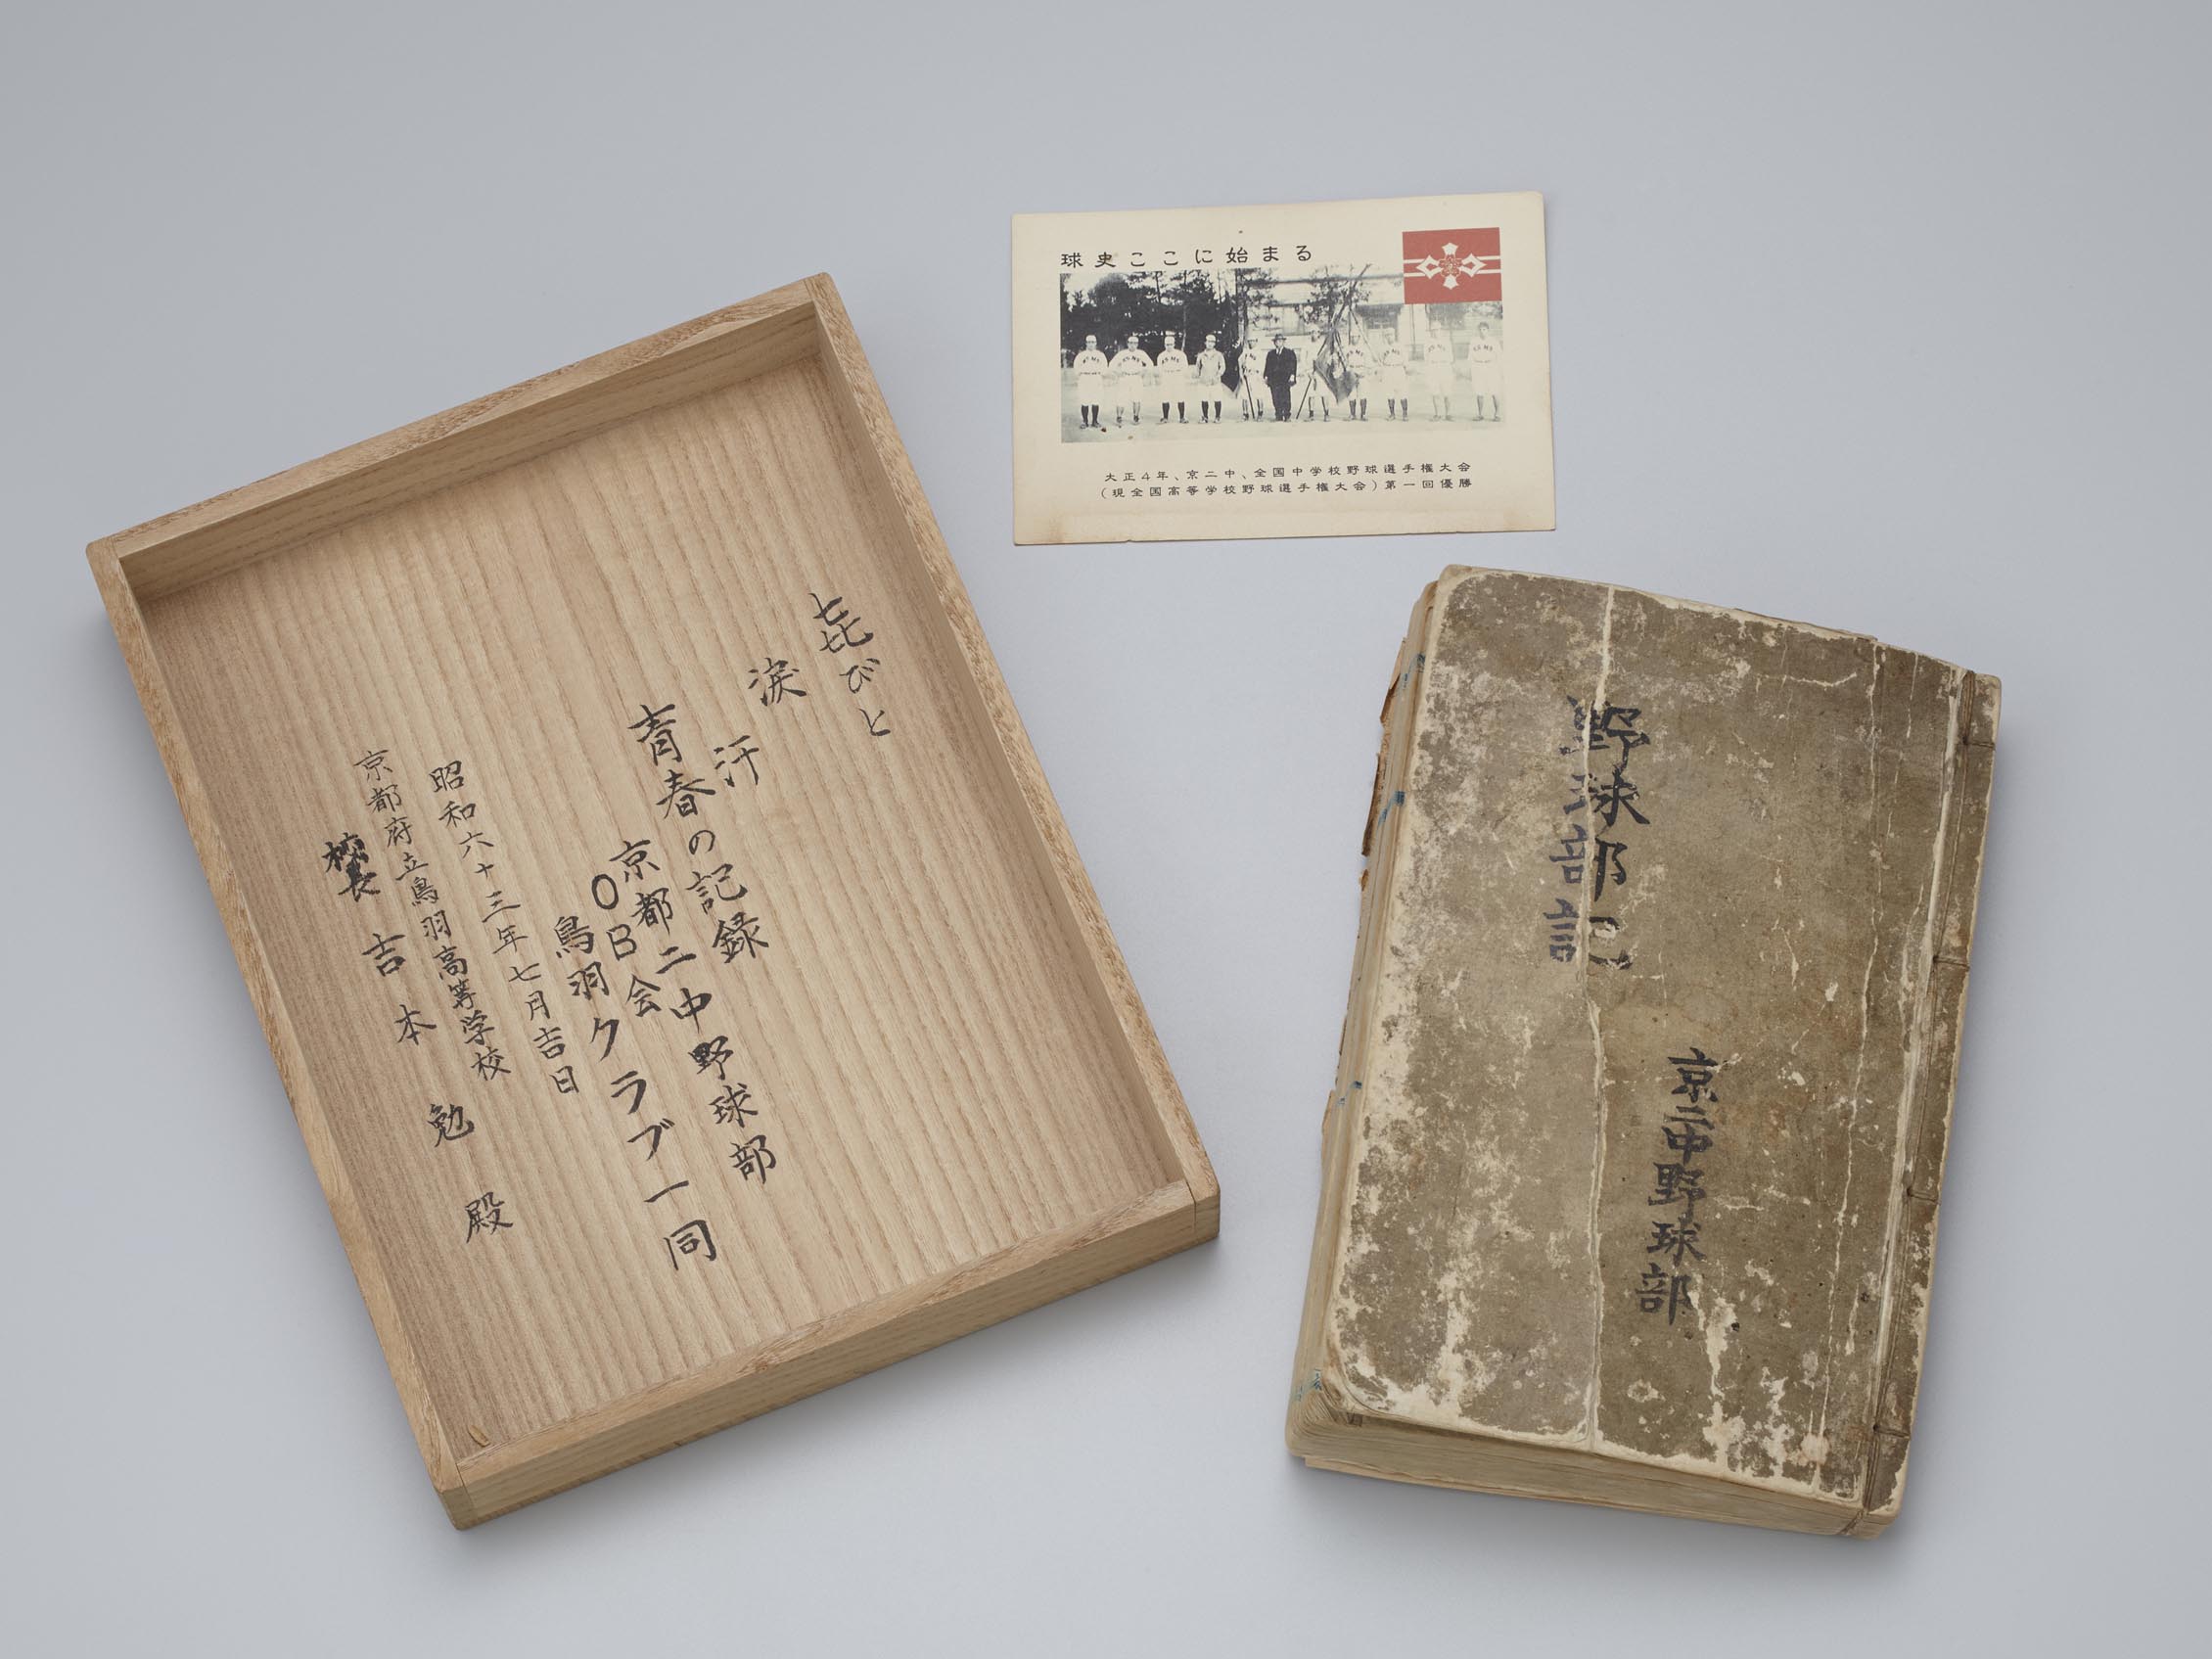 㐂びと
涙
汗
青春の記録
京都二中野球部
OB会
鳥羽クラブ一同
昭和六十三年七月吉日
京都府立鳥羽高等学校
校長 吉本 勉 殿
球史ここに始まる
大正4年、京二中、全国中学校野球選手権大会
(現全国高等学校野球選手権大会)第一回優勝
野球部記
京二中野球部